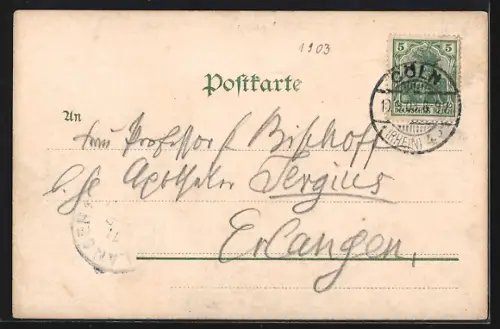 1903
5 5
CÖLN
(RHEIN)
Postkarte
An
Frau Professor Bischoff
Apotheker Sergius
Erlangen,
LANGEN